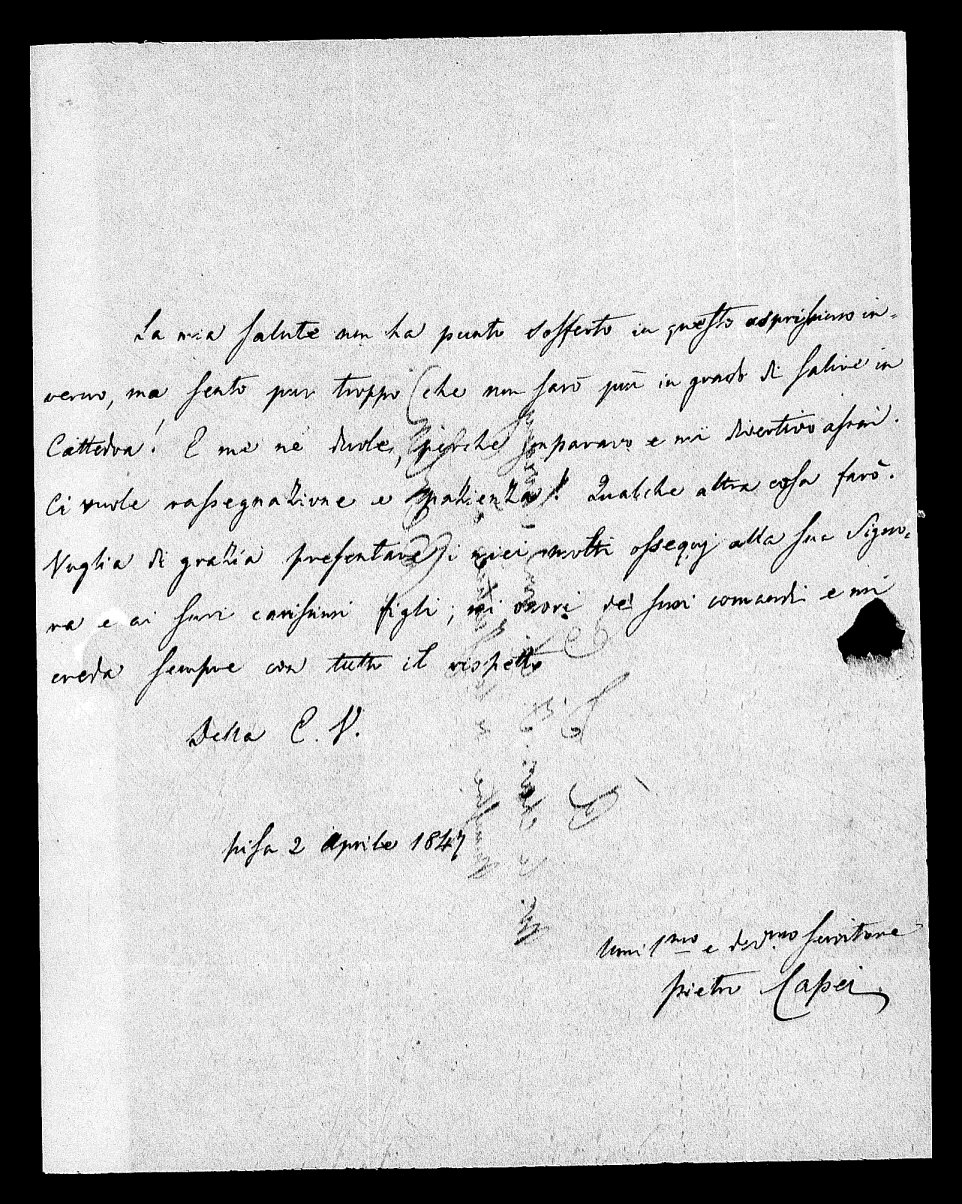 La mia salute non ha punto sofferto in questo asprissimo in-
verno, ma sento pur troppo che non sarò più in grado di salire in
Cattedra! E me ne duole, perchè imparavo e mi divertivo assai.
Ci vuole rassegnazione e pazienza! Qualche altra cosa farò.
Voglia di grazia presentare i miei molti ossequj alla sua Signo-
ra e ai suoi carissimi figli; mi onori dei suoi comandi e mi
creda sempre con tutto il rispetto
Della C. V.
Pisa 2 Aprile 1847
Umil.mo e dev.mo servitore
Pietro Capei